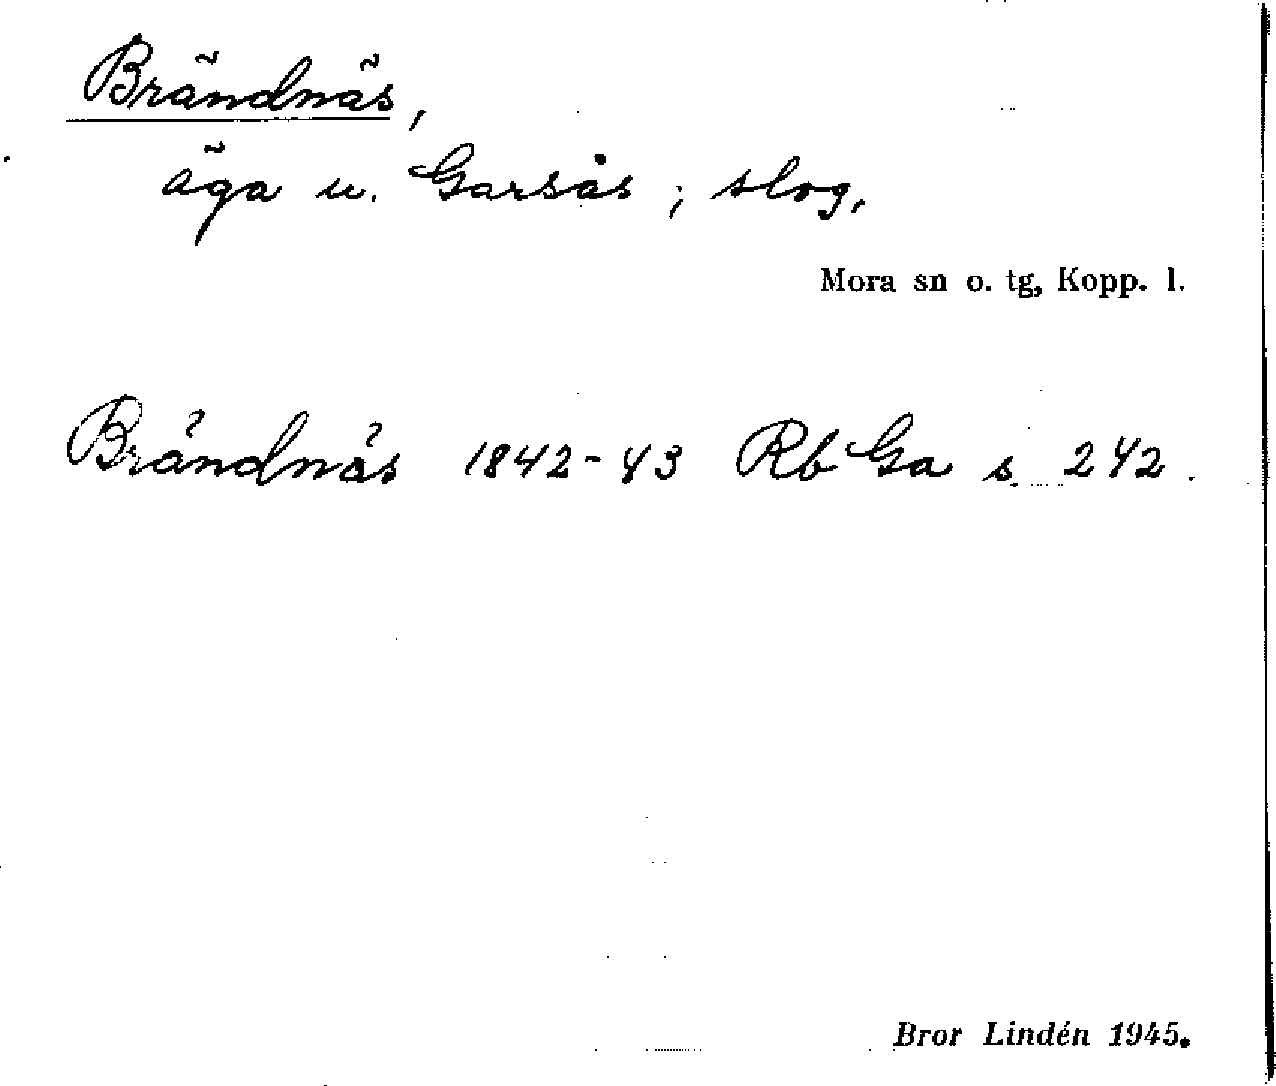 Brändnäs,
äga u. Garsås; slog,
Mora sn o. tg, Kopp. l.
Brändnäs 1842-43 Rb Ga s. 242.
Bror Lindén 1945.